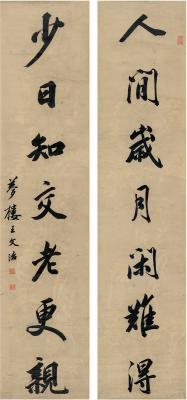 人間歲月閑難得
少日知交老更親
夢樓王文治